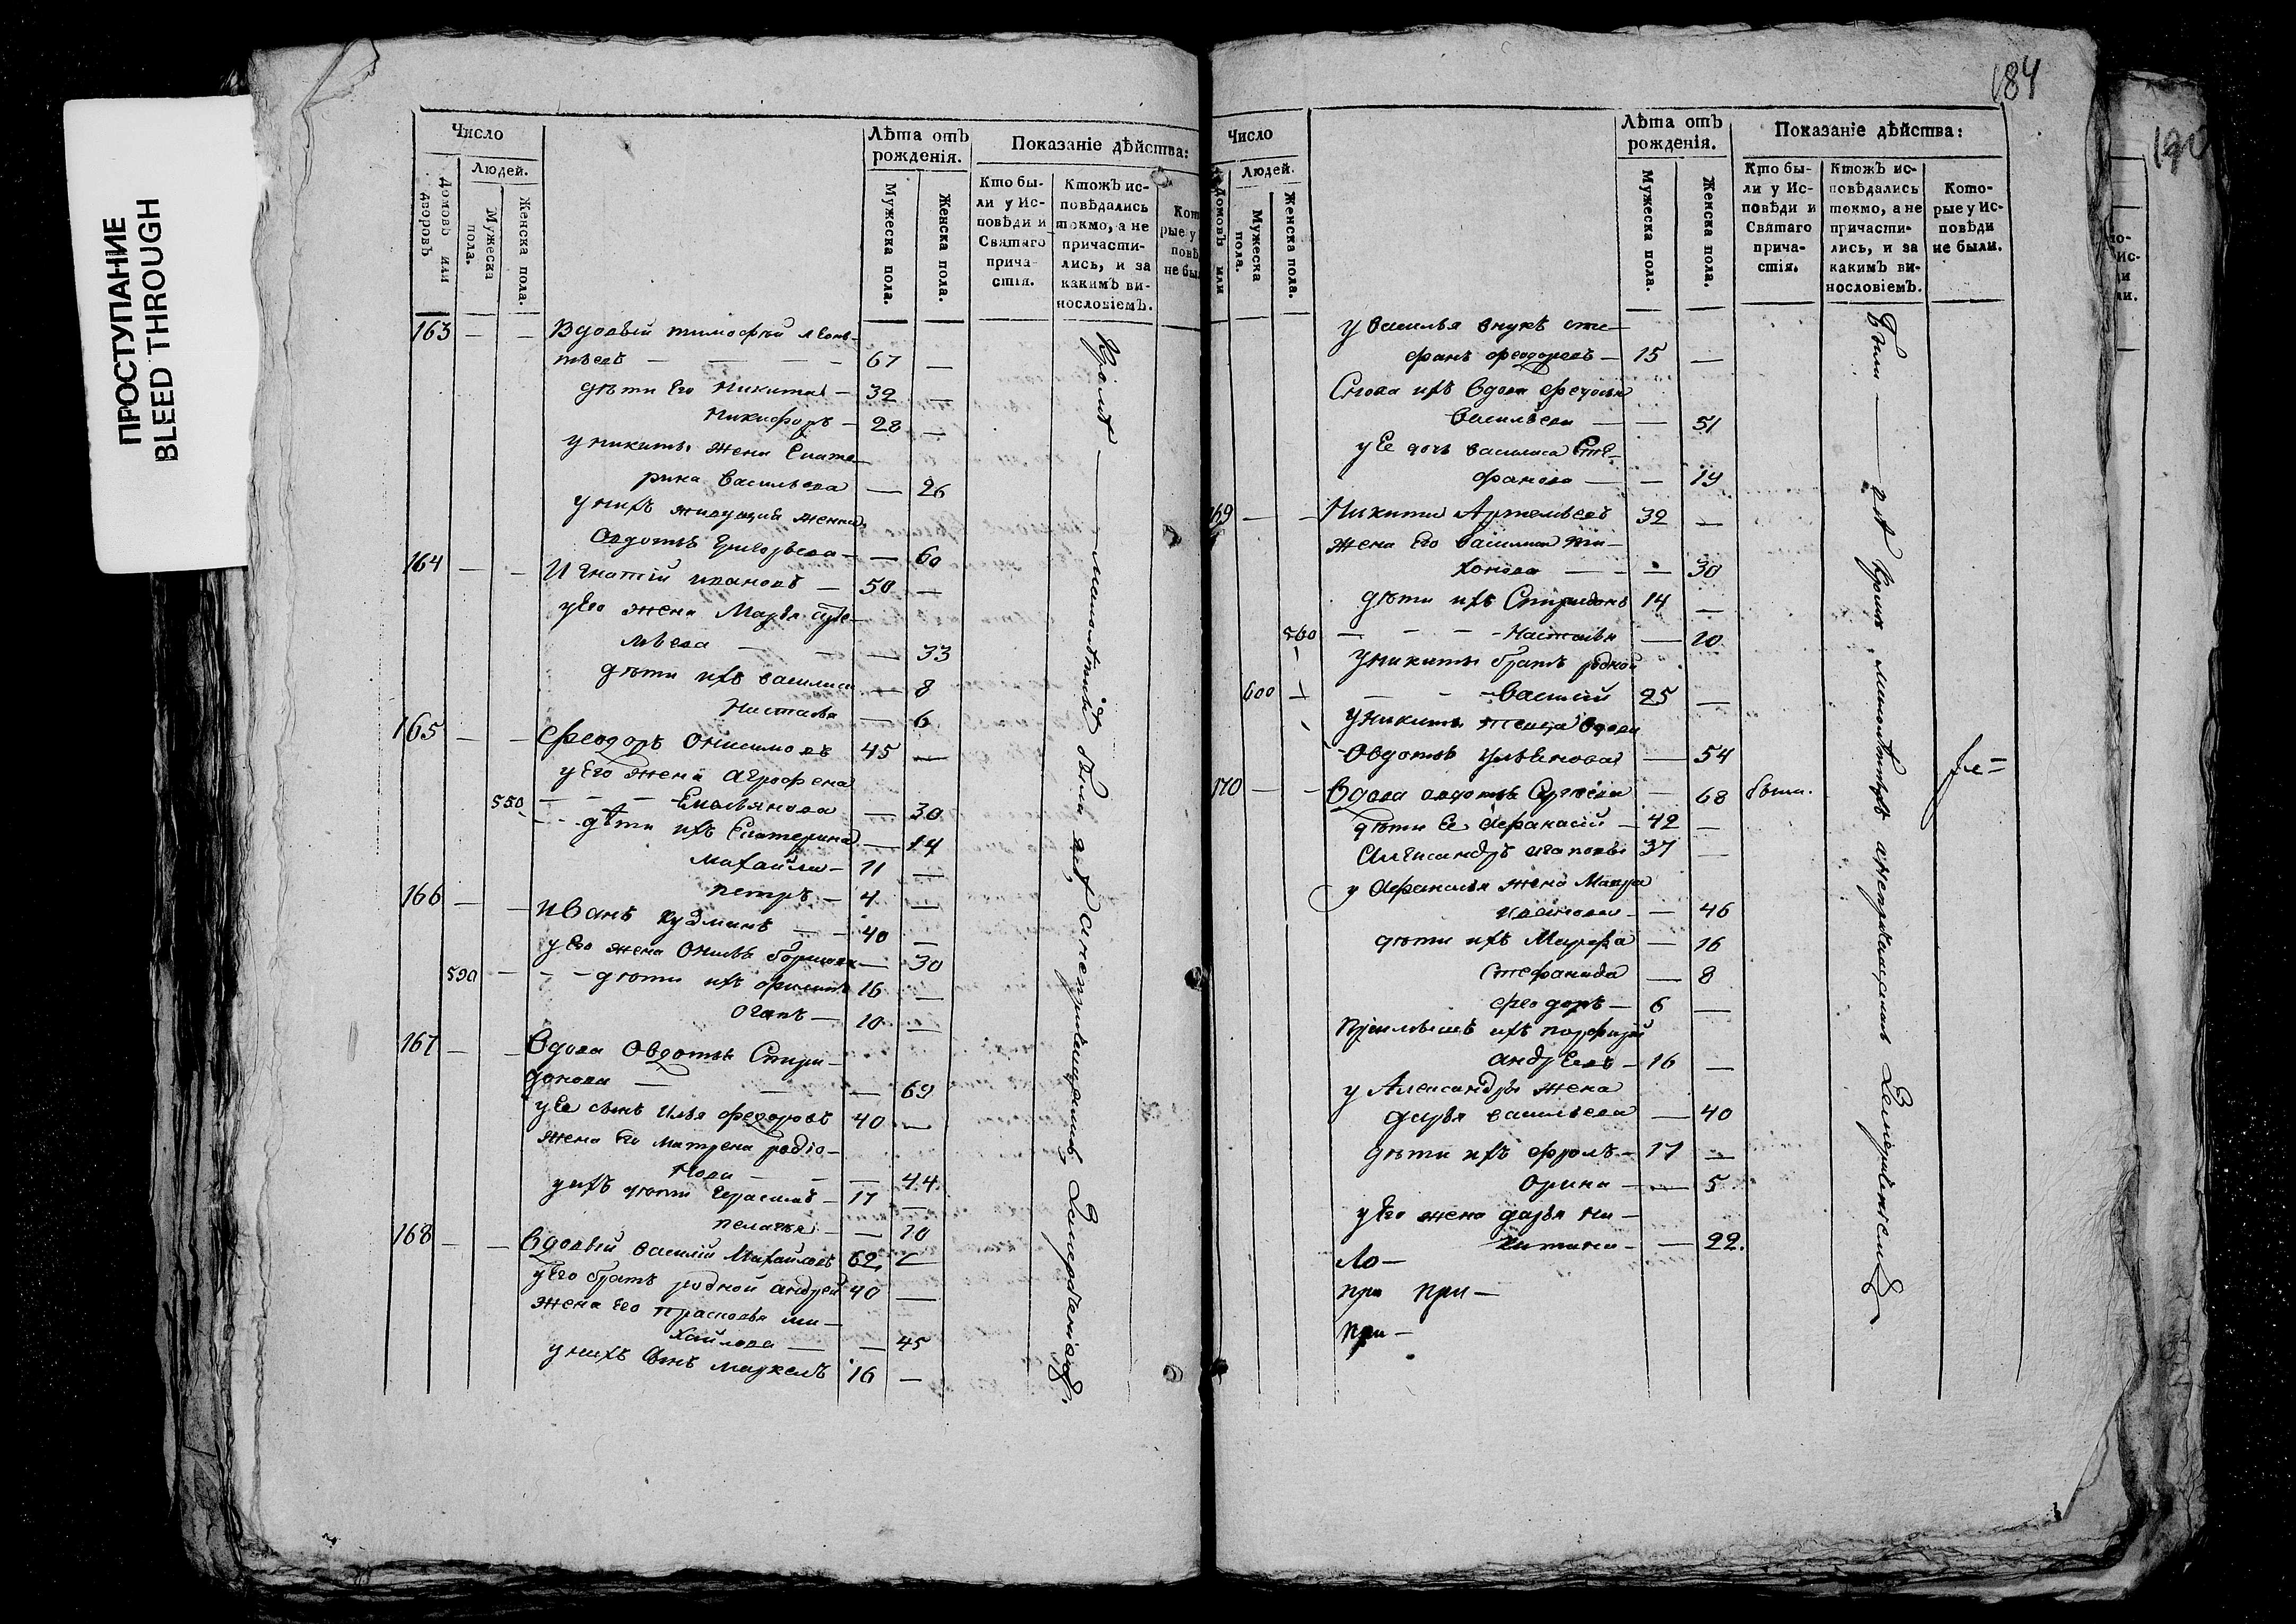 ПРОСТУПАНИЕ
BLEED THROUGH
Число
Людей.
Домовъ или дворовъ
Мужеска пола.
Женска пола.
Лѣта отъ рожденія.
Мужеска пола.
Женска пола.
Показаніе дѣйства:
Кто бы-
ли у Ис-
повѣди и
Святаго
прича-
стія.
Ктожъ ис-
повѣдались
токмо, а не
причасти-
лись, и за
какимъ ви-
нословіемъ.
163 — — Вдовый тимофей леонъ-
тьевъ — 67 —
дѣти Его никита — 32 —
никифоръ — 28 —
у никиты жена Екате-
рина васильева — 26
у нихъ живущия женка
Овдотья Григорьева — — 60
164 — — Игнатій ивановъ — 50 —
у Его жена Марья
— 33
дѣти ихъ василиса — 8
Настасья — 6
165 — — Феодоръ Онисимовъ 45 —
у Его жена агрофена
550 — — — Емельянова — 30
дѣти ихъ Екатерина — 14
Михайла — 11 —
петръ — 4 —
166 — — иванъ кузминъ — 40 —
у Его жена — 30
590 — — — дѣти ихъ 16 —
— 10 —
167 — — Вдова Овдотья Спири-
донова — — 69
у Ея сынъ илья феодоровъ 40 —
жена Его матрена родіо-
нова — — 44
у ихъ дѣти Герасимъ — 17 —
пелагея — — 10
168 — — Вдовый василій Михайловъ 62 —
у Его братъ родной андрей 40 —
жена Его прасковья ми-
хайлова — — 45
у нихъ сынъ маркелъ 16 —
Кромѣ — малолѣтныхъ были
184
190
Число
Людей.
Домовъ или
Мужеска пола.
Женска пола.
Лѣта отъ рожденія.
Мужеска пола.
Женска пола.
Показаніе дѣйства:
Кто бы-
ли у Ис-
повѣди и
Святаго
прича-
стія.
Ктожъ ис-
повѣдались
токмо, а не
причасти-
лись, и за
какимъ ви-
нословіемъ.
Кото-
рые у Ис-
повѣди
не были.
у василья внукъ сте-
фанъ феодоровъ — 15 —
Сноха ихъ вдова федосья
васильева — — 51
у Ее дочь василиса Сте-
фанова — — 19
169 — — Никита Артемьевъ 32 —
жена Его василиса ти-
хонова — — 30
дѣти ихъ Спиридонъ 14 —
560 — — — Настасья — 10
у никиты братъ родной
600 — — — василій 25 —
у никиты теща вдова
Овдотья — 54
170 — — Вдова авдотья Сергѣева — 68 были.
дѣти Ее Афанасій — 42 —
Александръ 37 —
у Афанасья жена Мавра
ивановна — — 46
дѣти ихъ Марфа — 16
Стефанида — 8
феодоръ — 6 —
ихъ порфирій
андреевъ — 16 —
у Александры жена
дарья васильева — 40
дѣти ихъ фролъ — 17 —
Орина — — 5
у Его жена дарья ни-
китина — — 22.
Ло —
при при —
при —
Были — всѣ кромѣ малолѣтныхъ